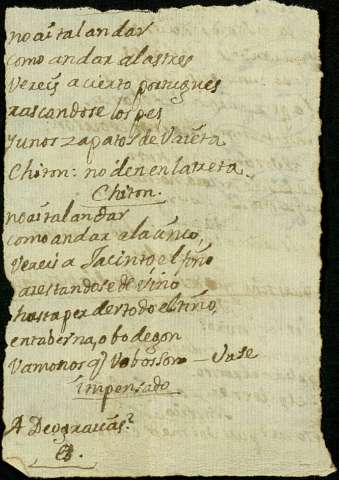 no ai tal andar
como andar a las tres
Vereis a cierto portugues
rascandose los pes
Y unos zapatos de Vaueta
Chiton: no den en la treta.
Chiton.
no ai tal andar
como andar a la cinco,
Vereis a Jacinto el
de vino
hasta perder todo el tino,
en taberna, o bodegon
Vamonos q Vase
impensado
A Deo gracias